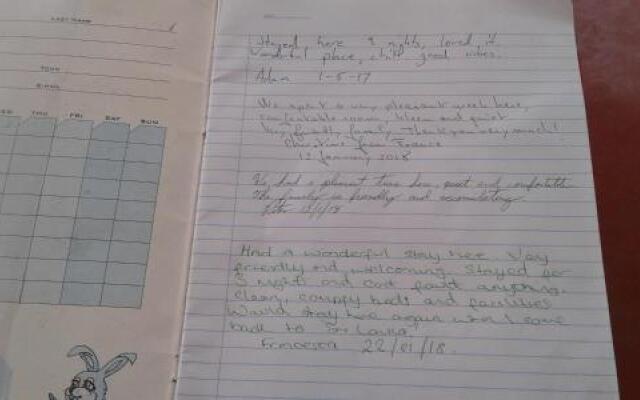 LAST NAME
TOWN
THU FRI SAT SUN
Stayed here 9 nights, loved it.
Wonderful place, chill good vibes.
1-5-17
We spent a very pleasant week here,
comfortable room, kleen and quiet
Very friendly family, Thank you very much!
Christine from France
12 January 2018
We had a pleasant time here, quiet and comfortable
The family is friendly and
Had a wonderful stay here. Very
friendly and welcoming. Stayed for
3 nights and cant fault anything.
Clean, comfy beds and facilities
Would stay here again when I come
back to Sri Lanka!
Francesca 22/01/18.